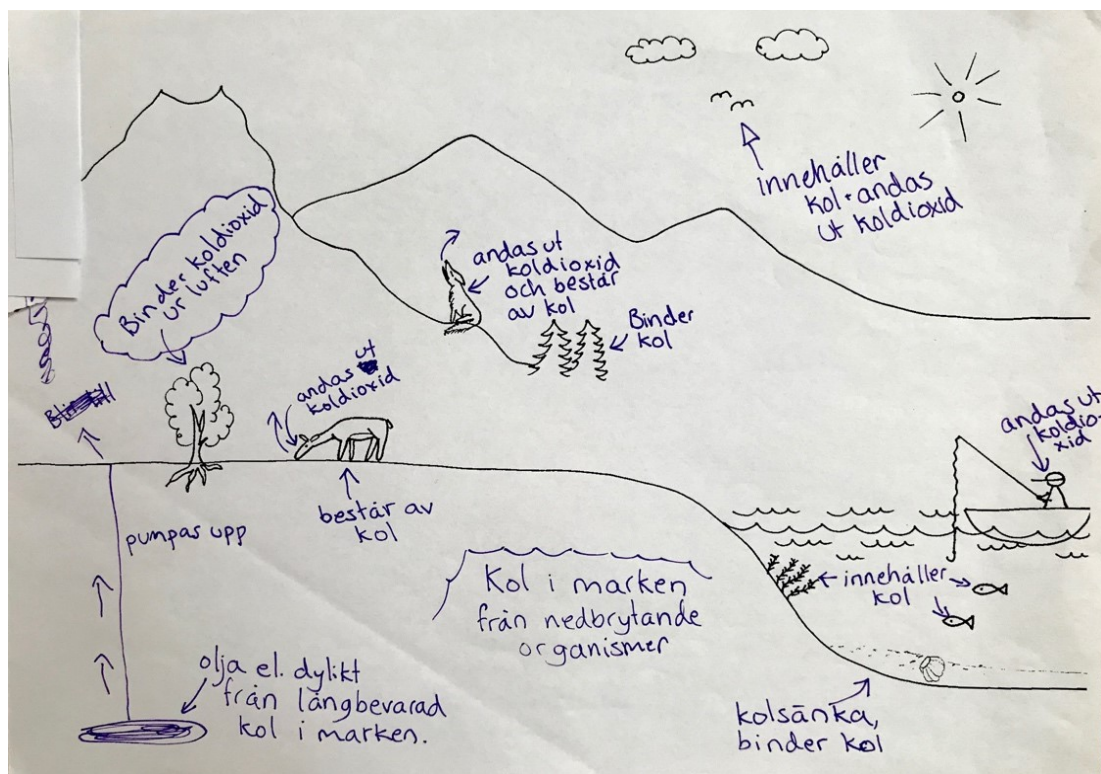 innehåller
kol + andas
ut koldioxid
Binder koldioxid
ur luften
andas ut
koldioxid
och består
av kol
Binder
kol
andas ut
koldioxid
andas ut
koldio-
xid
består av
kol
pumpas upp
innehåller
kol
Kol i marken
från nedbrytande
organismer
olja el. dylikt
från långbevarad
kol i marken.
kolsänka,
binder kol